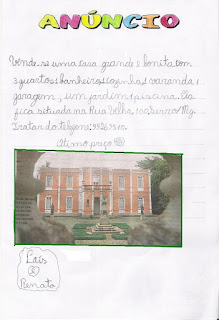 ANÚNCIO
Vende-se uma casa grande e bonita com
3 quartos 1 banheiro 1 cozinha 1 varanda 1
garagem, um jardim 1 piscina. Ela
fica situada na Rua Velha, 100 Serro/Mg.
Tratar do telefone:
Ótimo preço
Laís
e
Renata